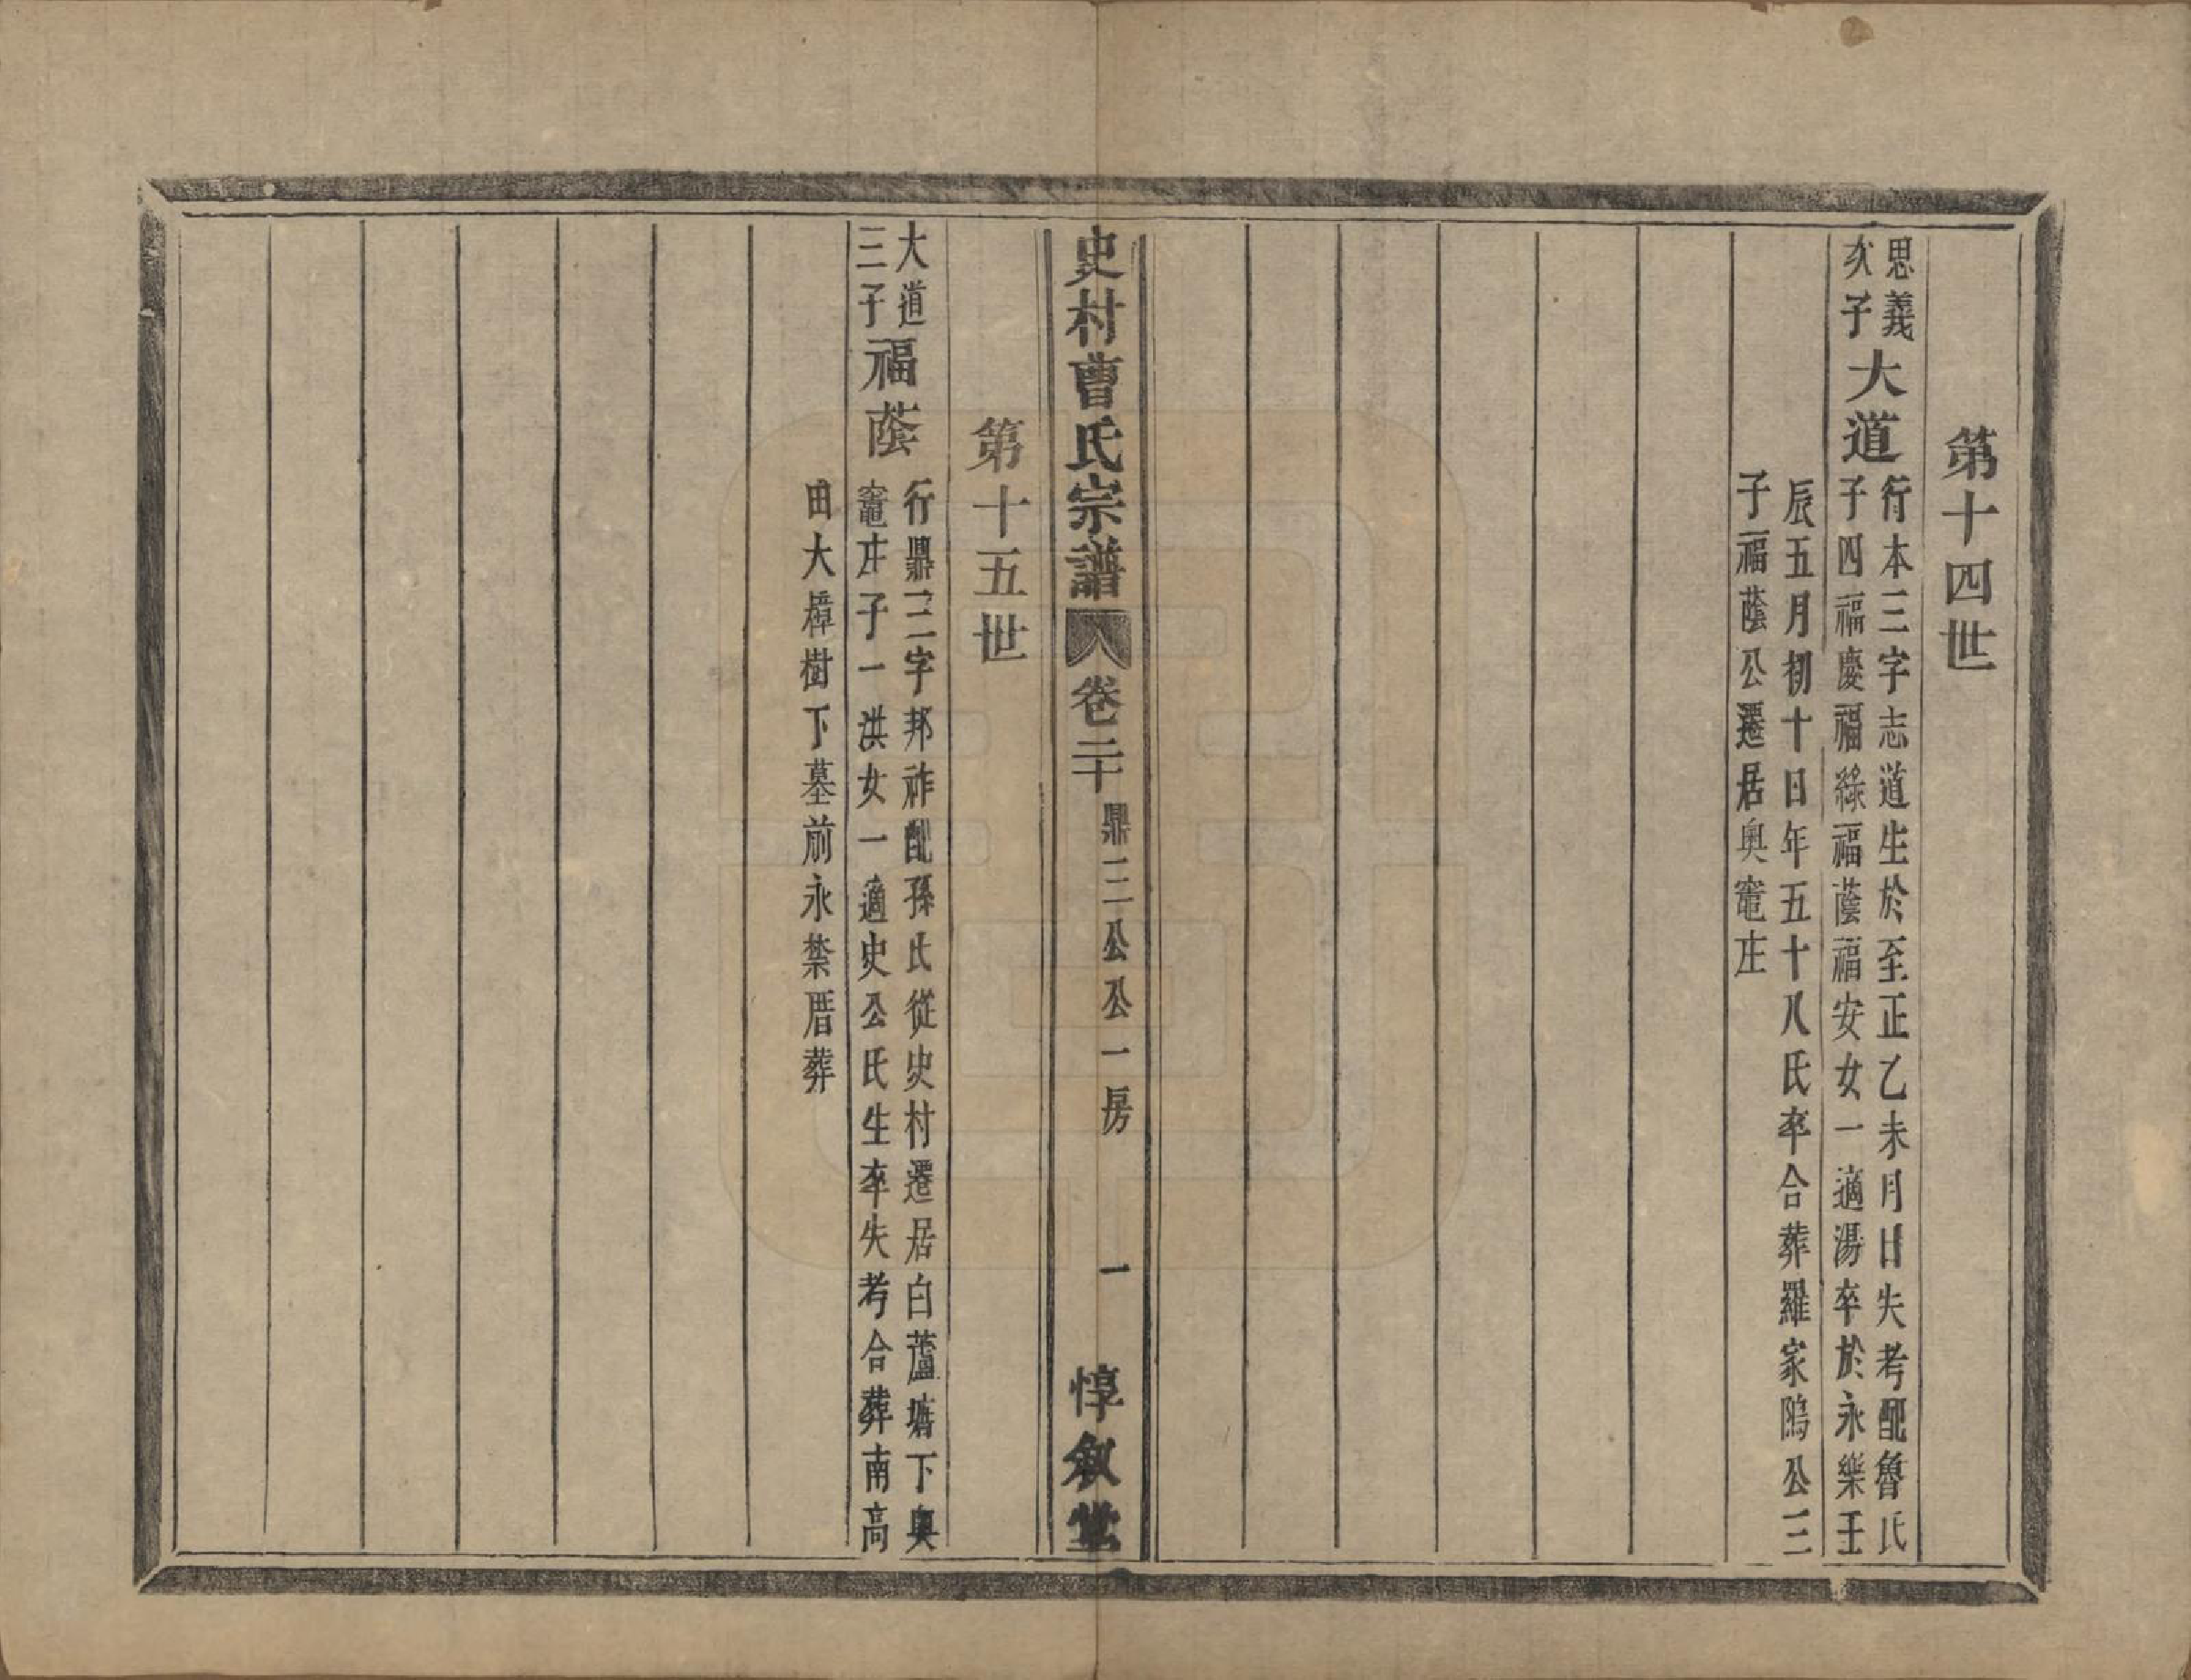 第十四世
思義
次子
大道
行本三字志道生於至正乙未月日失考配魯氏
子四福慶福綠福蔭福安女一適湯卒於永樂壬
辰五月初十日年五十八氏卒合葬羅家鴎公三
子福蔭公遷居奥竈庄
史村曹氏宗譜 卷二十 鼎三公公一房 一 惇敘堂
第十五世
大道
三子
福蔭
行鼎三字邦祚配孫氏從史村遷居白蘆塘下奥
竈庄子一洪女一適史公氏生卒失考合葬南高
田大樟樹下墓前永禁厝葬